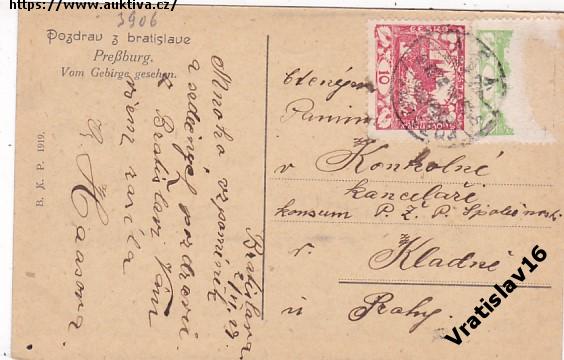 https://www.auktiva.cz/
3906
Pozdrav z bratislave
Preßburg.
Vom Gebirge gesehen.
B. K. P. 1919.
Bratislava
Mnoho vzpomínek
a srdečný pozdrav
z Bratislav Vám
všem zasílá
Haasova
10
Ctěným
Panům
v Kontrolné
kanceláři
konsum P. Ž. P. Společnosti
v
Kladně
u Prahy.
Vratislav16